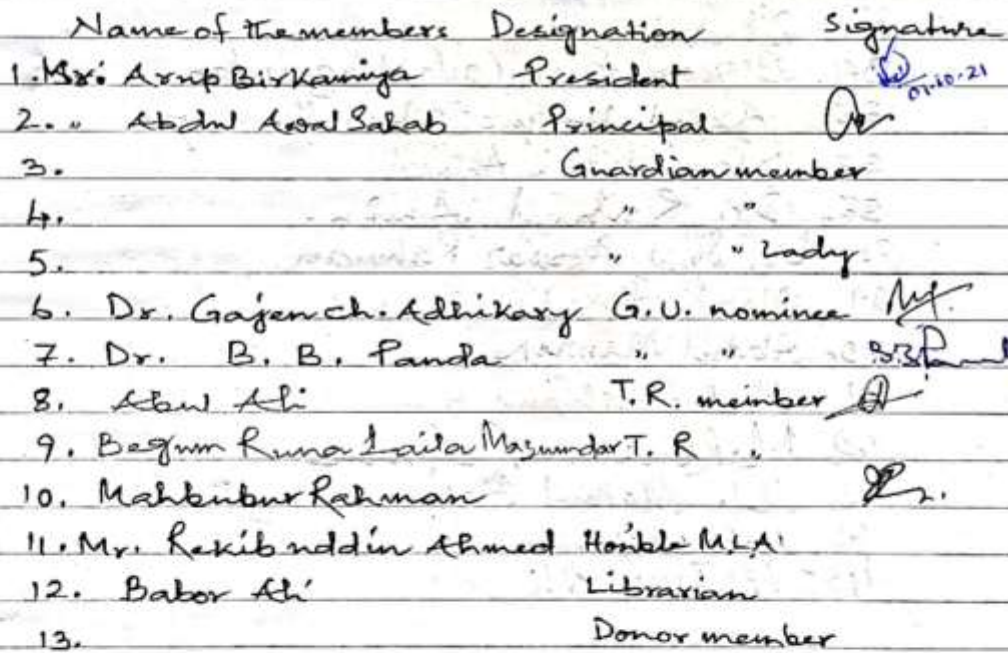 Name of the members Designation Signature
1. Mr. Arup Birkamiya President 01.10.21
2. " Abdul Awal Sahab Principal
3. Guardian member
4. " "
5. " " Lady
6. Dr. Gajen ch. Adhikary G.U. nominee
7. Dr. B. B. Panda " "
8. Abul Ali T.R. member
9. Begum Runa Laila Mazumdar T. R "
10. Mahbubur Rahman
11. Mr. Rekibuddin Ahmed Hon'ble M.L.A.
12. Babor Ali Librarian
13. Donor member